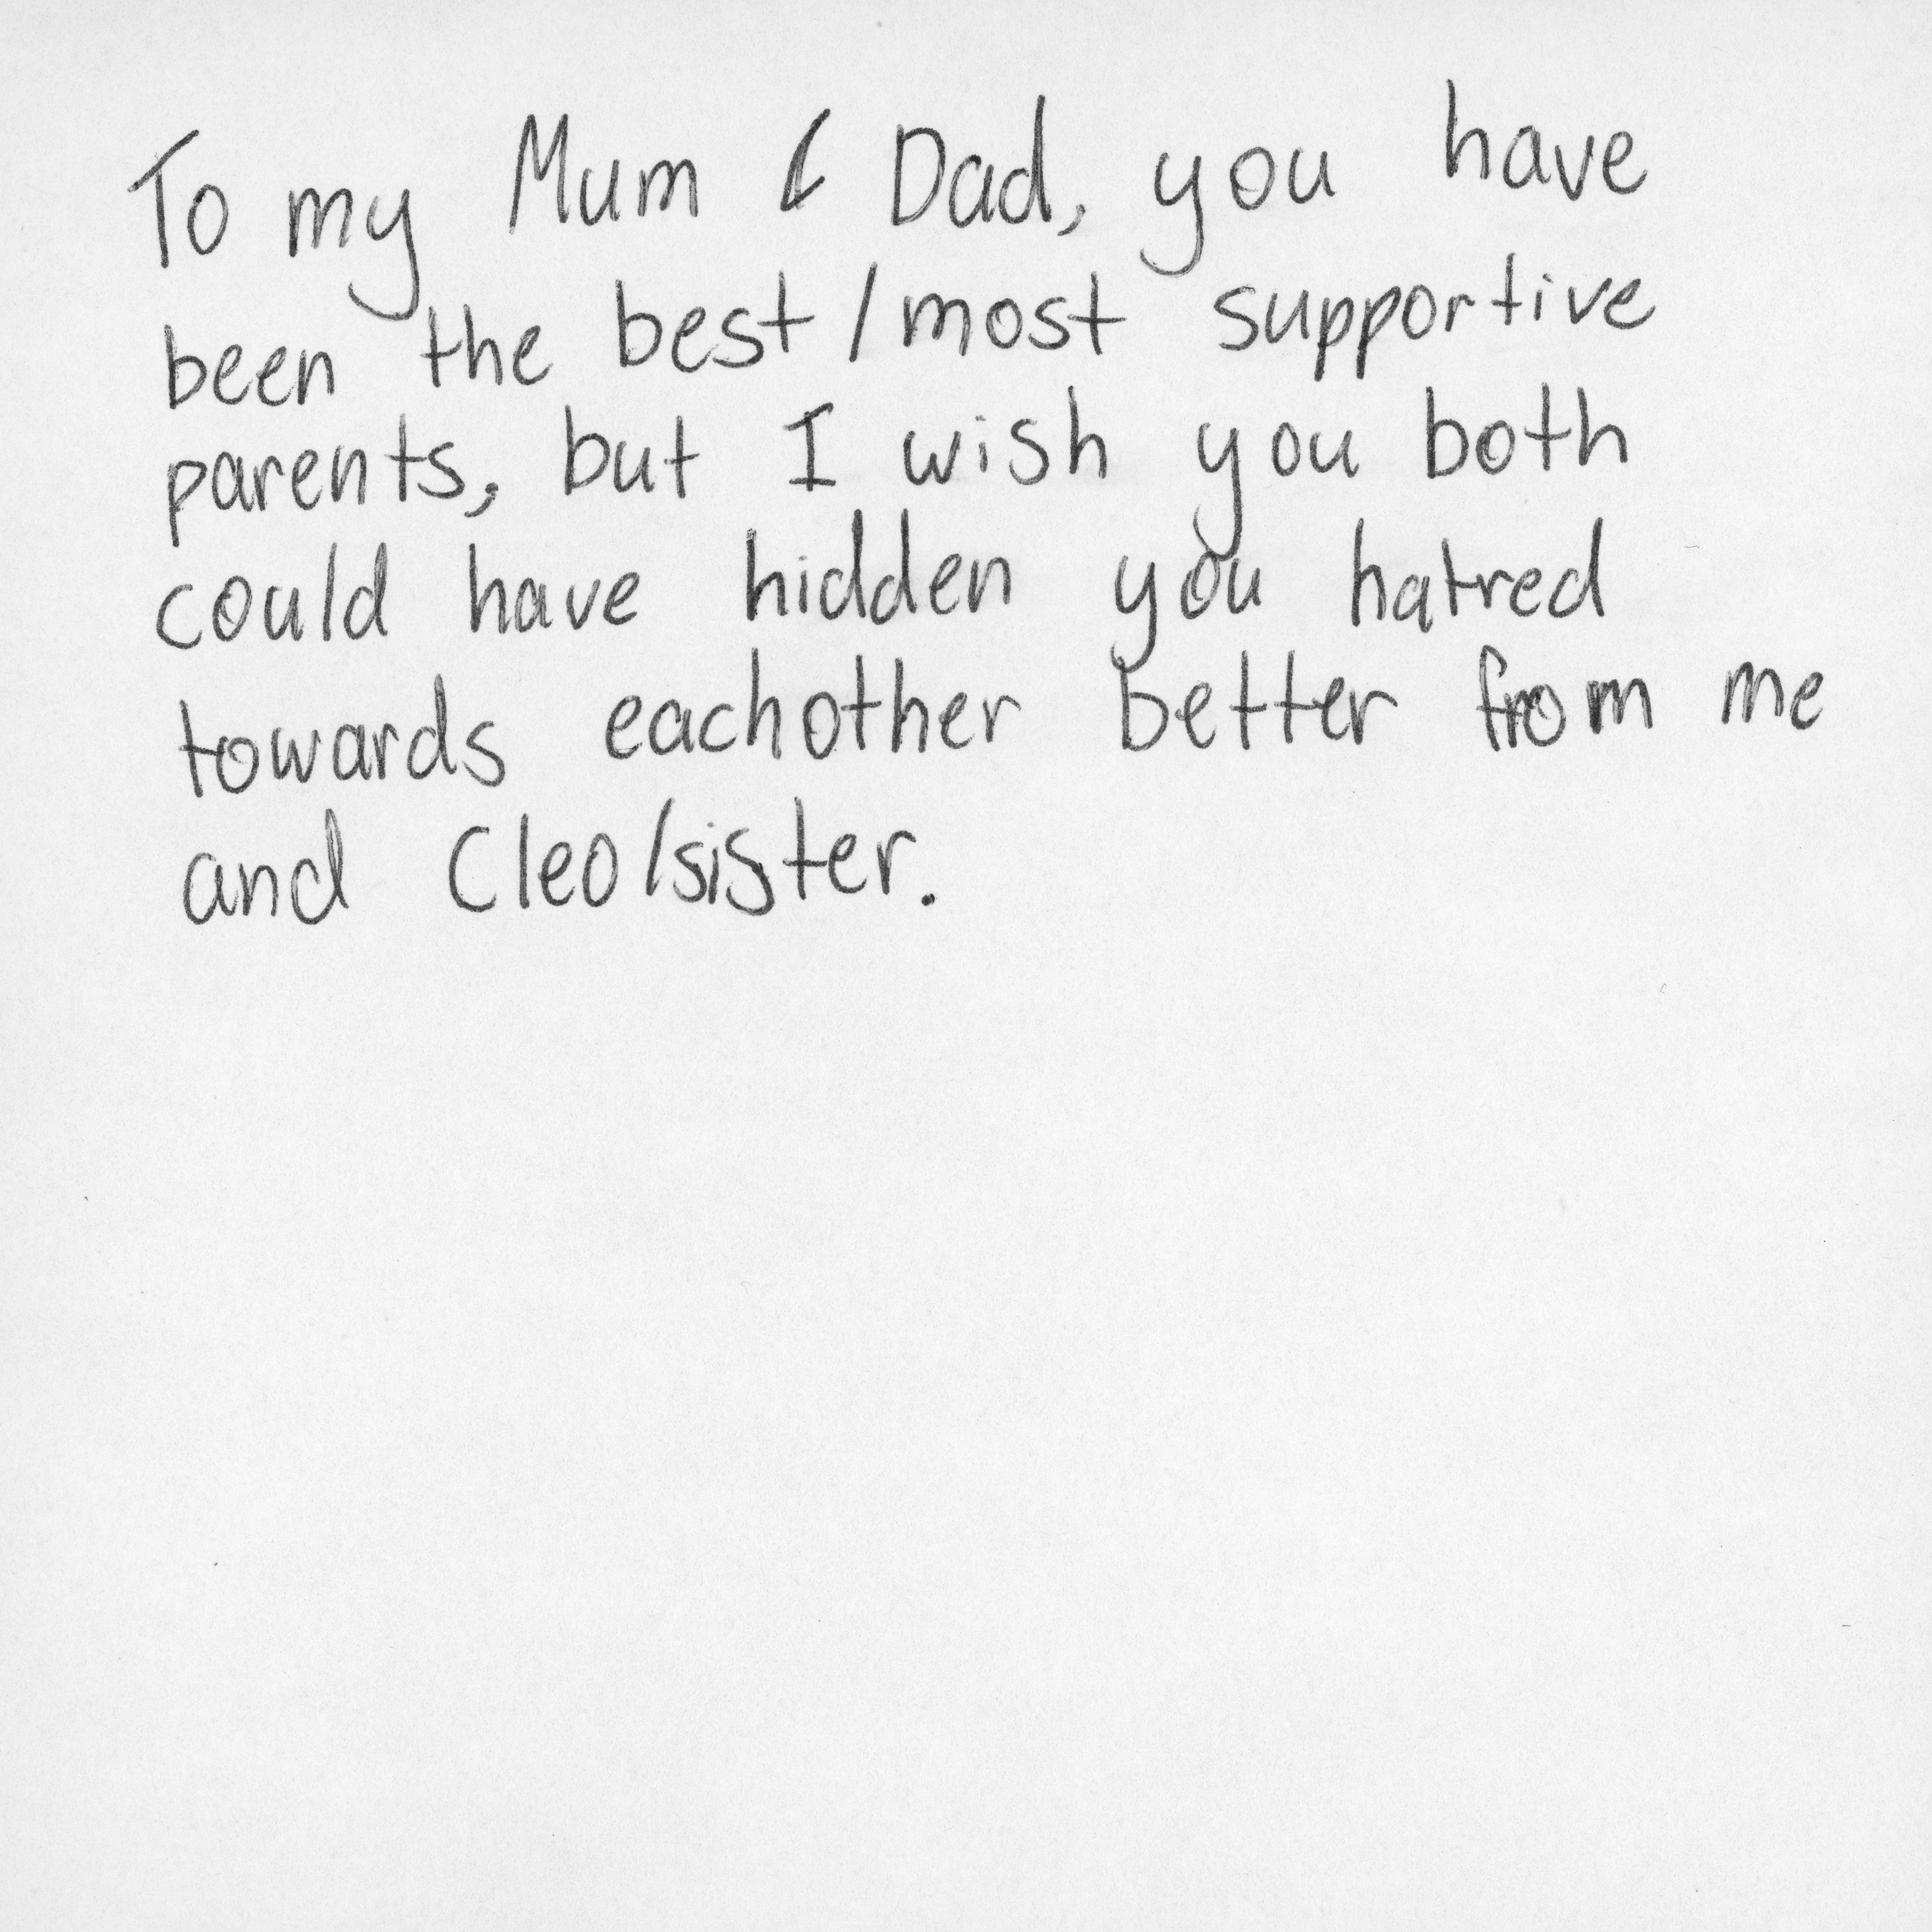 To my Mum & Dad, you have
been the best/most supportive
parents, but I wish you both
could have hidden you hatred
towards eachother better from me
and Cleo/sister.